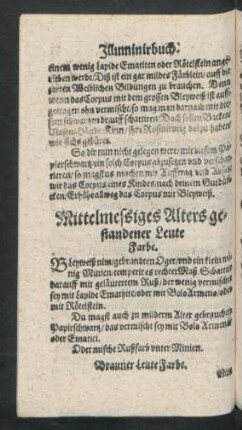 Illuminirbuch:
einem wenig Lapide Ematiten oder Rötelstein ange
rieben werde/ Diß ist ein gar mildes Färblein/ auff die
zarten Weiblichen Bildungen zu brauchen. Denn
wenn das Corpus mit dem grossen Bleyweiß ist auff-
getragen
schwartzen drauff schattiren/ Doch sollen Backen/
Nasen/ Hände/ Kinn/ ihre Rosinirung darzu haben/
wie sichs gebüret.
So dir nun nicht gelegen were/ mit diesem Pa-
pierschwartz ein solch Corpus abzusetzen vnd verschat-
tieren/ so magstus machen mit Aufftrag vnd
wie das Corpus eines Kindes/ nach deinem Gutdün-
cken/ das Corpus mit Bleyweiß.
Mittelmessiges Alters ge-
standener Leute
Farbe.
Bleyweiß nim/ gebranden Oger/ vnd ein klein we-
nig Minien temperir es rechter Maß. Schattier
darauff mit geläutertem Ruß/ der wenig vermischet
sey mit Lapide Ematite/ oder mit Bolo Armena/ oder
mit Rötelstein.
Du magst auch zu milderm Alter gebrauchen
Papirschwartz/ das vermischt sey mit Bolo Armena
oder Ematite.
Oder mische Rußfarb vnter Minien.
Brauner Leute Farbe.